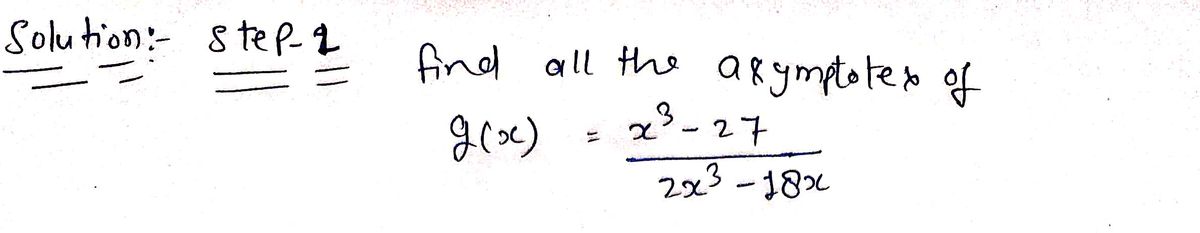 Solution:- Step-1
find all the asymptotes of
g(x) = x³ - 27
2x³ - 18x